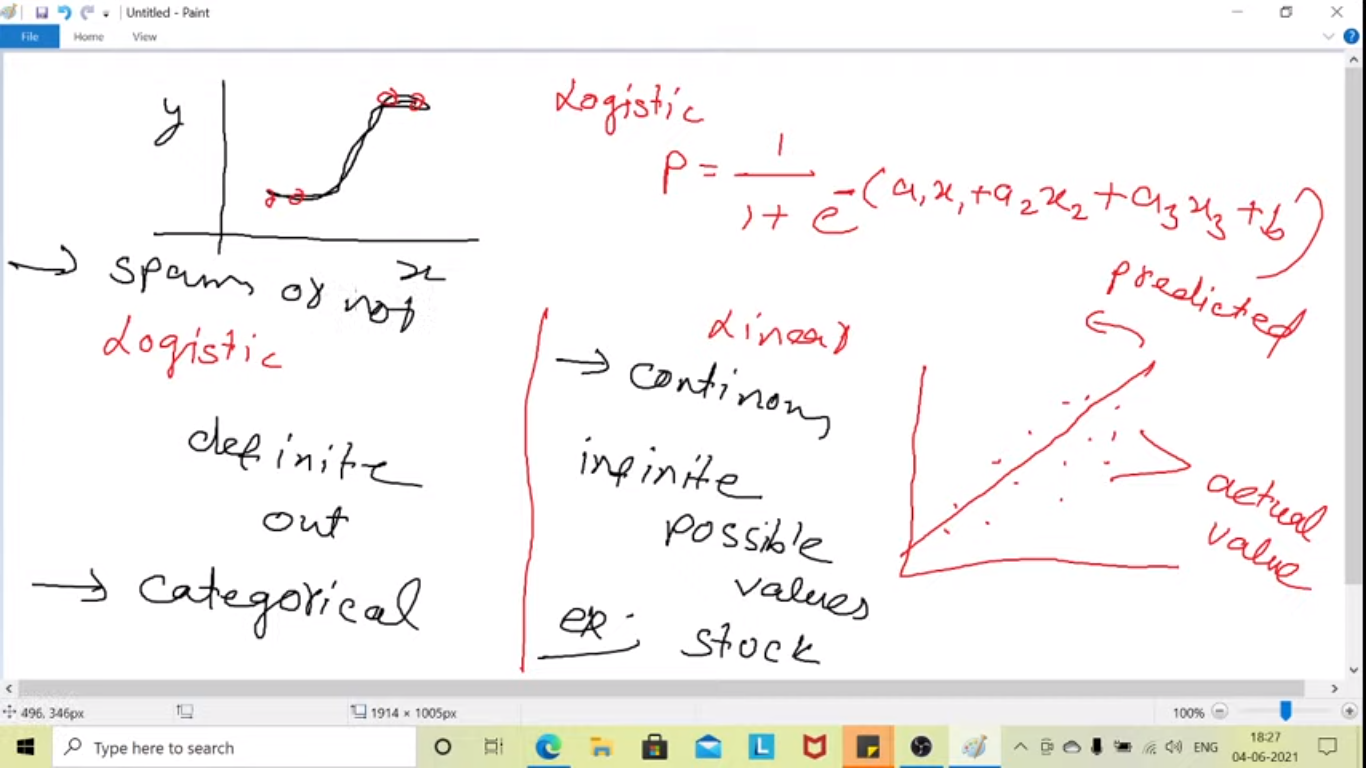 Untitled - Paint
File Home View
y
x
→ spam or not
Logistic
definite
out
→ categorical
Logistic
P = 1 / 1 + e^-(a1x1 + a2x2 + a3x3 + b)
Linear
→ continous
infinite
possible
values
ex: stock
predicted
actual
value
496, 346px
1914 × 1005px
100%
Type here to search
ENG
18:27
04-06-2021